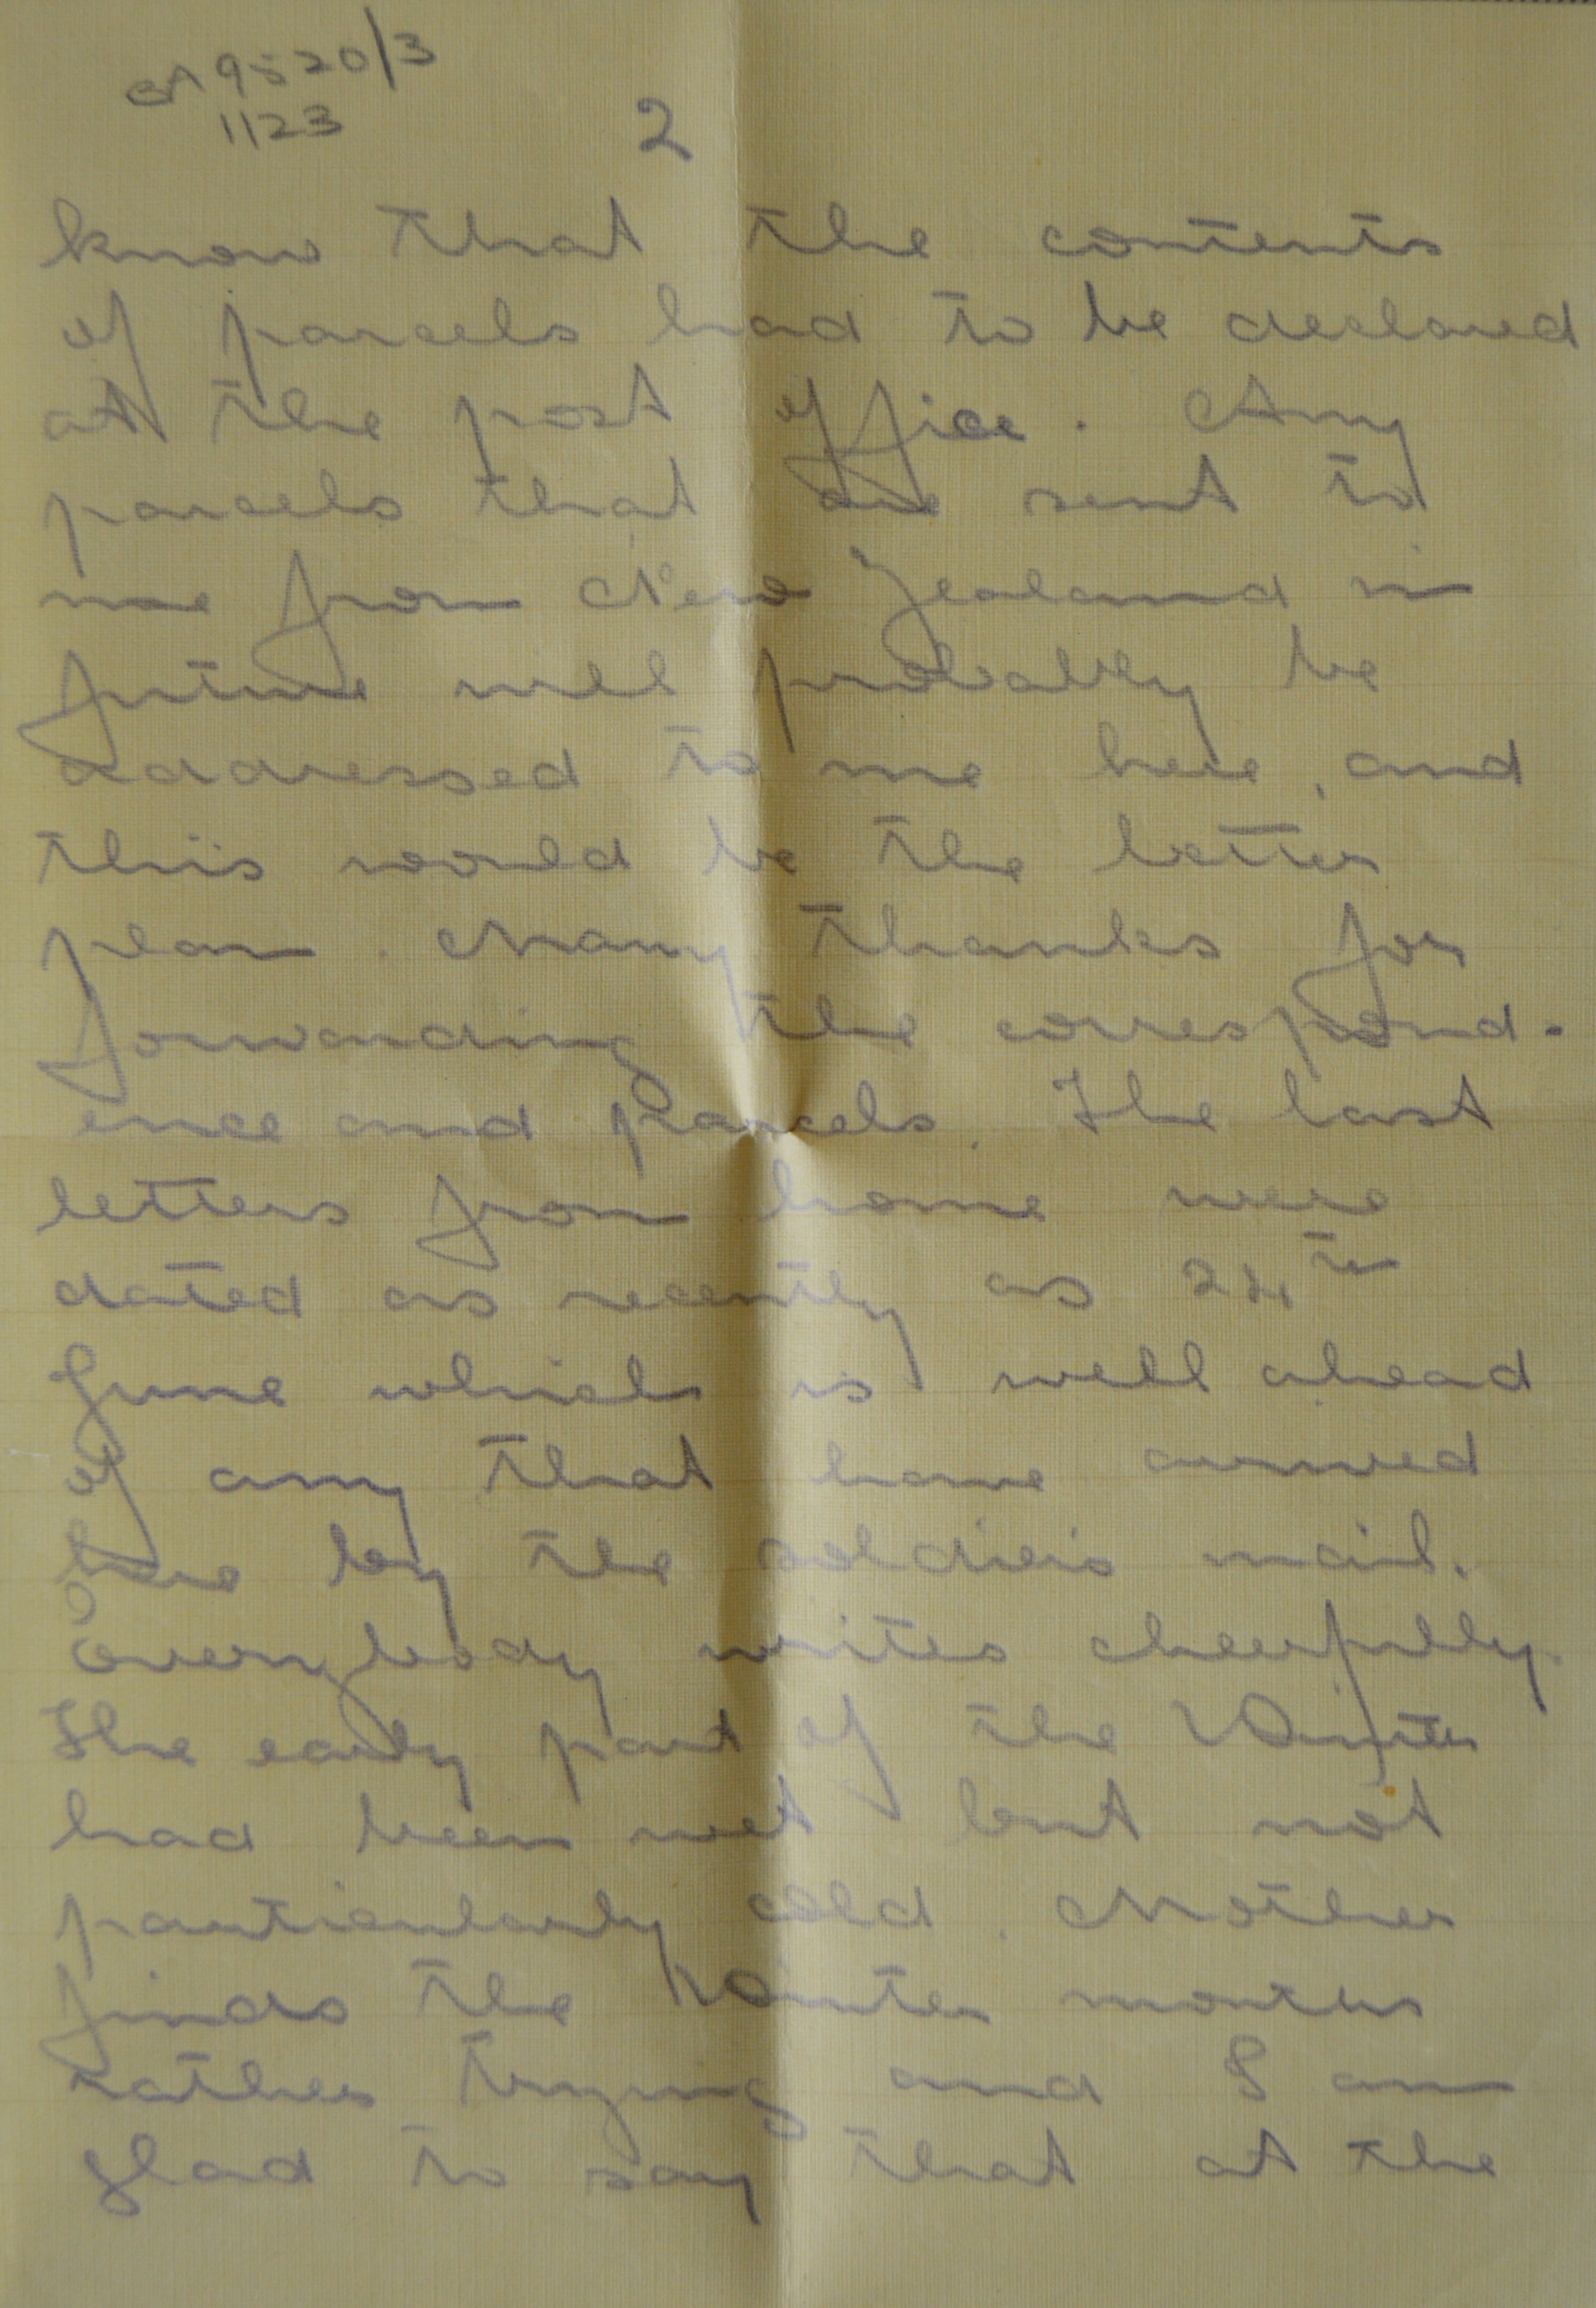 SA 9520/3
1123
2
know that the contents
of parcels had to be declared
at the post office. Any
parcels that are sent to
me from New Zealand in
future will probably be
addressed to me here, and
this would be the better
plan. Many thanks for
forwarding the correspond-
ence and parcels. The last
letters from home were
dated as recently as 24th
June which is well ahead
of any that have arrived
here by the soldiers mail.
Everybody writes cheerfully.
The early part of the Winter
had been wet but not
particularly cold. Mother
finds the Winter months
rather trying and I am
glad to say that at the